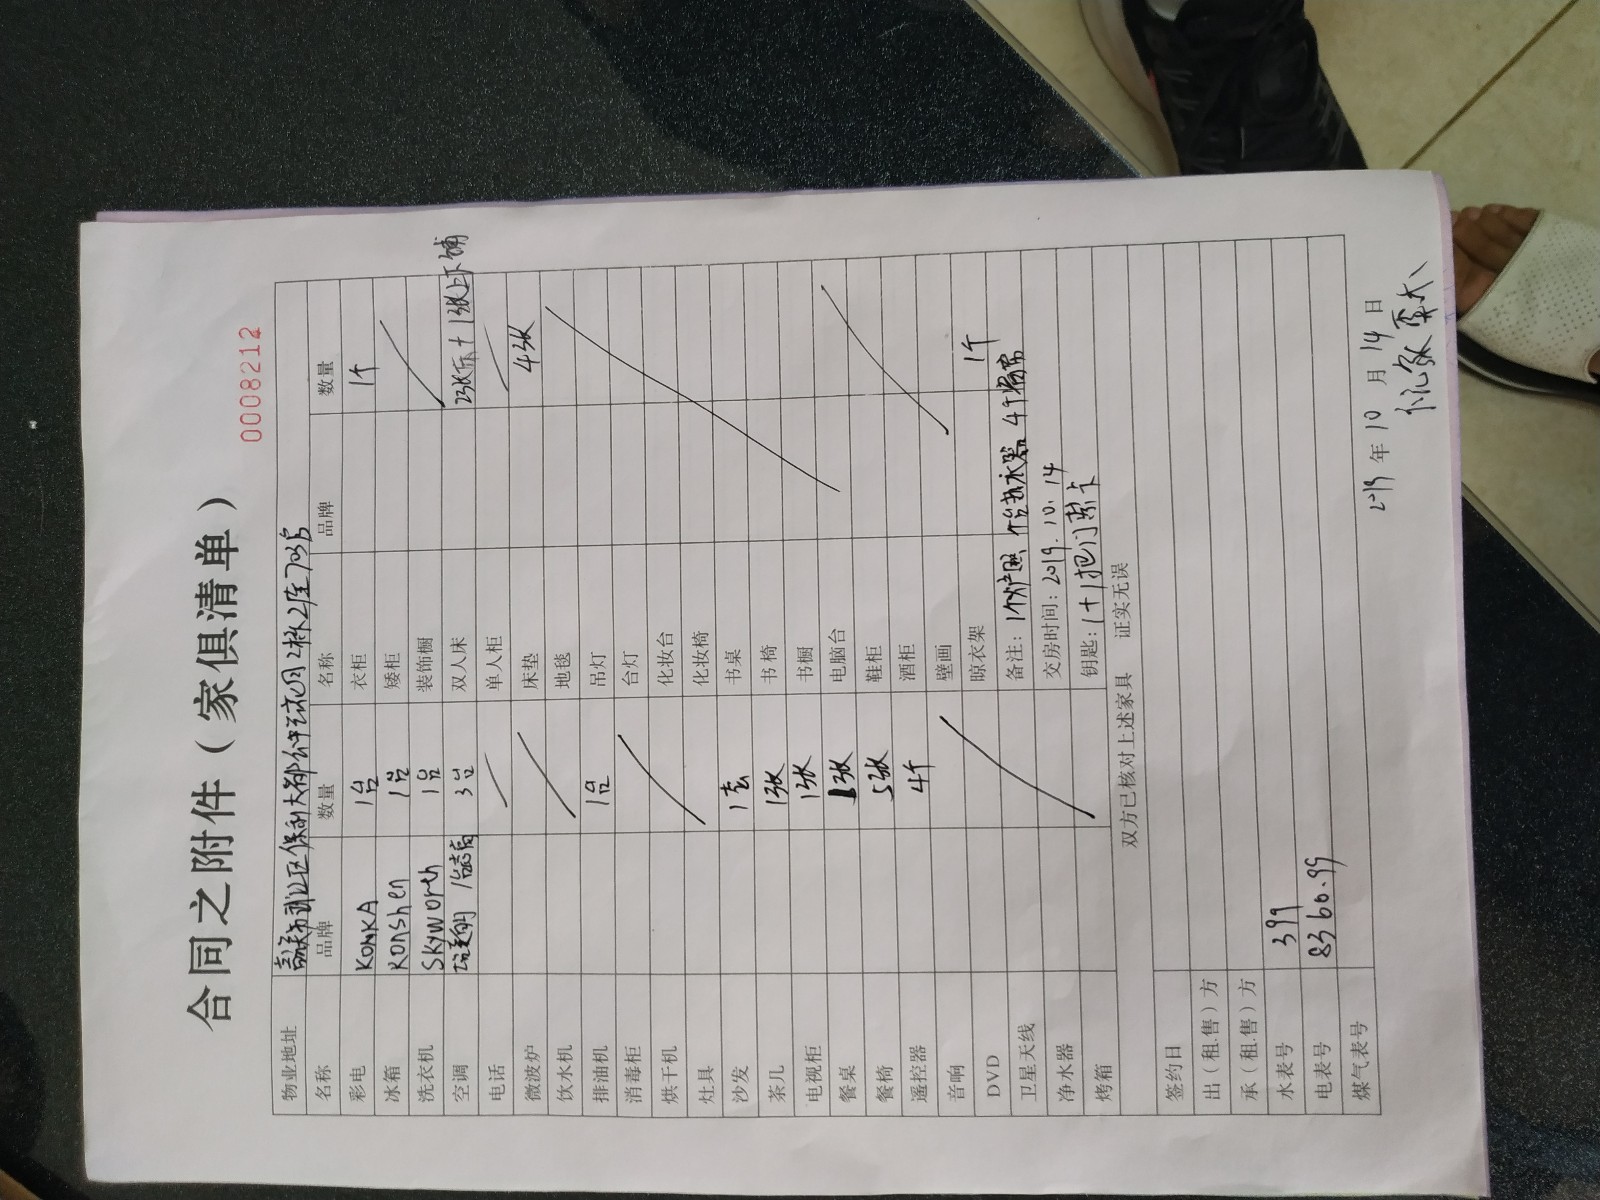 0008212
合同之附件（家俱清单）
物业地址 大都 2栋2座703房
名称 品牌 数量 名称 品牌 数量
彩电 KONKA 1台 衣柜 1个
冰箱 Ronshen 1台 矮柜
洗衣机 Skyworth 1台 装饰橱
空调 3台 双人床 2张床+1张上下铺
电话 单人柜
微波炉 床垫 4张
饮水机 地毯
排油机 1台 吊灯
消毒柜 台灯
烘干机 化妆台
灶具 化妆椅
沙发 1套 书桌
茶几 1张 书椅
电视柜 1张 书橱
餐桌 1张 电脑台
餐椅 5张 鞋柜
遥控器 4个 酒柜
音响 壁画
DVD 晾衣架 1个
卫星天线 备注：1个 热水器 4个
净水器 交房时间：2019.10.14
烤箱 钥匙：1+1把门禁卡
双方已核对上述家具 证实无误
签约日
出（租.售）方
承（租.售）方
水表号 399
电表号 8360.99
煤气表号
2019年10月14日